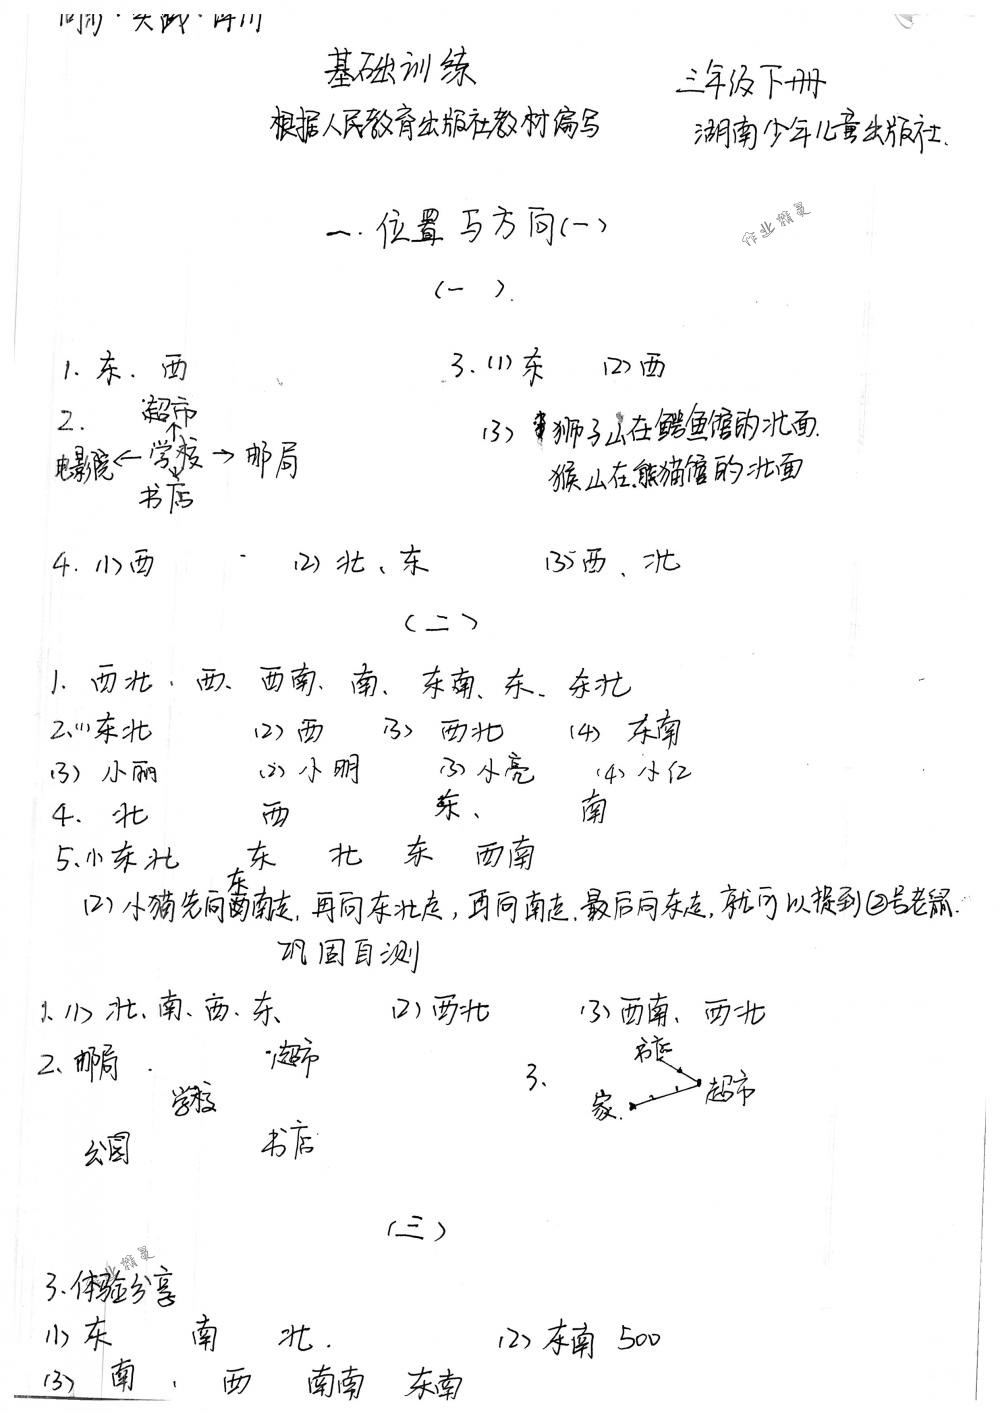 基础训练 三年级下册
根据人民教育出版社教材编写 湖南少年儿童出版社.
作业精灵
一.位置与方向(一)
(一).
1. 东. 西 3. (1) 东 (2) 西
2. 超市
电影院←学校→邮局
书店
(3) 狮子山在鳄鱼馆的北面.
猴山在熊猫馆的北面
4. (1) 西 (2) 北、东 (3) 西、北
(二)
1. 西北、西、西南、南、东南、东、东北
2.(1) 东北 (2) 西 (3) 西北 (4) 东南
(3) 小丽 (2) 小明 (3) 小亮 (4) 小红
4. 北 西 东、 南
5.(1) 东北 东 北 东 西南
(2) 小猫先向东南走,再向东北走,再向南走,最后向东走,就可以捉到②号老鼠.
巩固自测
1.(1) 北、南、西、东 (2) 西北 (3) 西南、西北
2、邮局 超市
学校
公园 书店
3. 书店
超市
家
(三)
作业精灵
3.体验分享
(1) 东 南 北. (2) 东南 500
(3) 南、 西 南南 东南